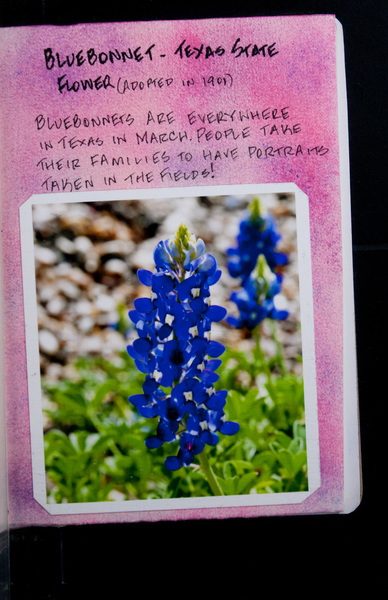 BLUEBONNET - TEXAS STATE
FLOWER (ADOPTED IN 1901)
BLUEBONNETS ARE EVERYWHERE
IN TEXAS IN MARCH. PEOPLE TAKE
THEIR FAMILIES TO HAVE PORTRAITS
TAKEN IN THE FIELDS!